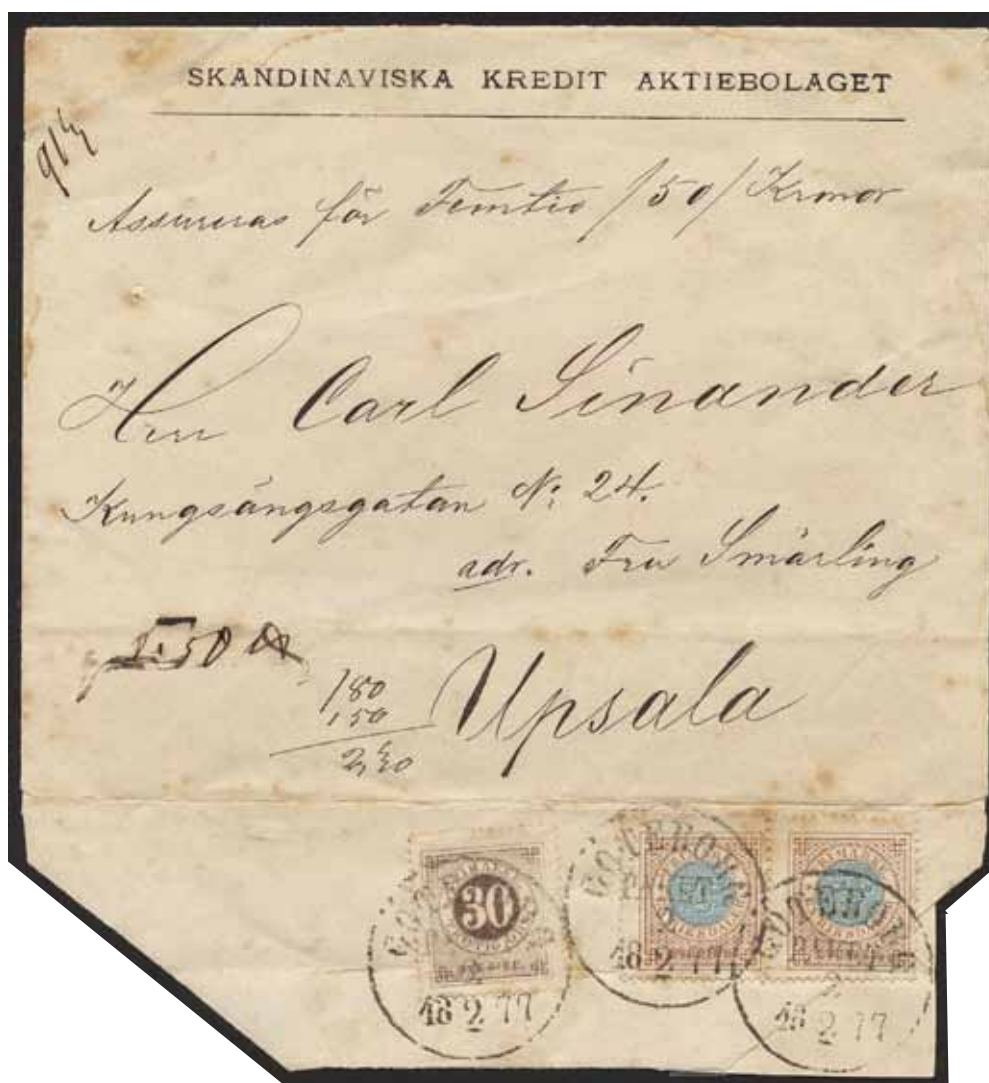 SKANDINAVISKA KREDIT AKTIEBOLAGET
Assureras för Femtio /50/ Kronor
Herr Carl Linander
Kungsängsgatan No: 24.
adr. Fru Smärling
1.50
180
150
Upsala
30
GÖTEBORG
18 2 77
GÖTEBORG
18 2 77
GÖTEBORG
18 2 77